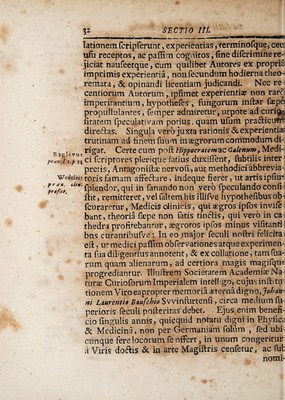 32 SECTIO III.
lationem scripserunt, experientias, terminosque, ceu
usu receptos, ac passim cognitos, sine discrimine re-
jiciat nauseetque, cum quilibet Autores ex propria
imprimis experientiâ, non secundum hodierna theo-
remata, & opinandi licentiam judicandi. Nec re-
centiorum Autorum, ipsimet experientiæ non rarò
imperitantium, hypotheses, fungorum instar sæpè
propullulantes, semper admiretur, utpote ad curio-
sitatem speculativam potius, quam usum practicum
directas. Singula verò juxta rationis & experientiæ
trutinam ad finem suum in ægrorum commodum di-
rigat. Certe cum post Hippocratem ac Galenum, Medi-
ci scriptores plerique satius duxissent, subtilis inter-
pretis, Antagonistæ nervosi, aut methodici abbrevia-
toris famam affectare, indeque fieret, ut artis ipsius
splendor, qui in sanando non verò speculando consi-
stit, remitteret, vel saltem his illisve hypothesibus ob-
scuraretur, Medicis clinicis, qui ægros ipsos invise-
bant, theoriâ sæpe non satis tinctis, qui verò in ca-
thedra profitebantur, ægrotos ipsos minus visitanti-
bus curantibusve: In eo major seculi nostri felicitas
est, ut medici passim observationes atque experimen-
ta sua diligentius annotent, & ex collatione, tam sua-
rum quam alienarum, ad certiora magis magisque
progrediantur. Illustrem Societatem Academiæ Na-
turæ Curiosorum Imperialem intelligo, cujus institu-
tionem Viro ea propter memoriâ æternâ digno, Johan-
ni Laurentio Bauschio Svvinfurtensi, circa medium su-
perioris seculi posteritas debet. Ejus enim benefi-
cio singulis annis, quicquid notatu digni in Physicâ
& Medicinâ, non per Germaniam solùm, sed ubi-
cunque fere locorum se offert, in unum congeritur
à Viris doctis & in arte Magistris censetur, ac sub
nomi-
Baglivus
prax. l. 1. p. 23
prax.
præfat.